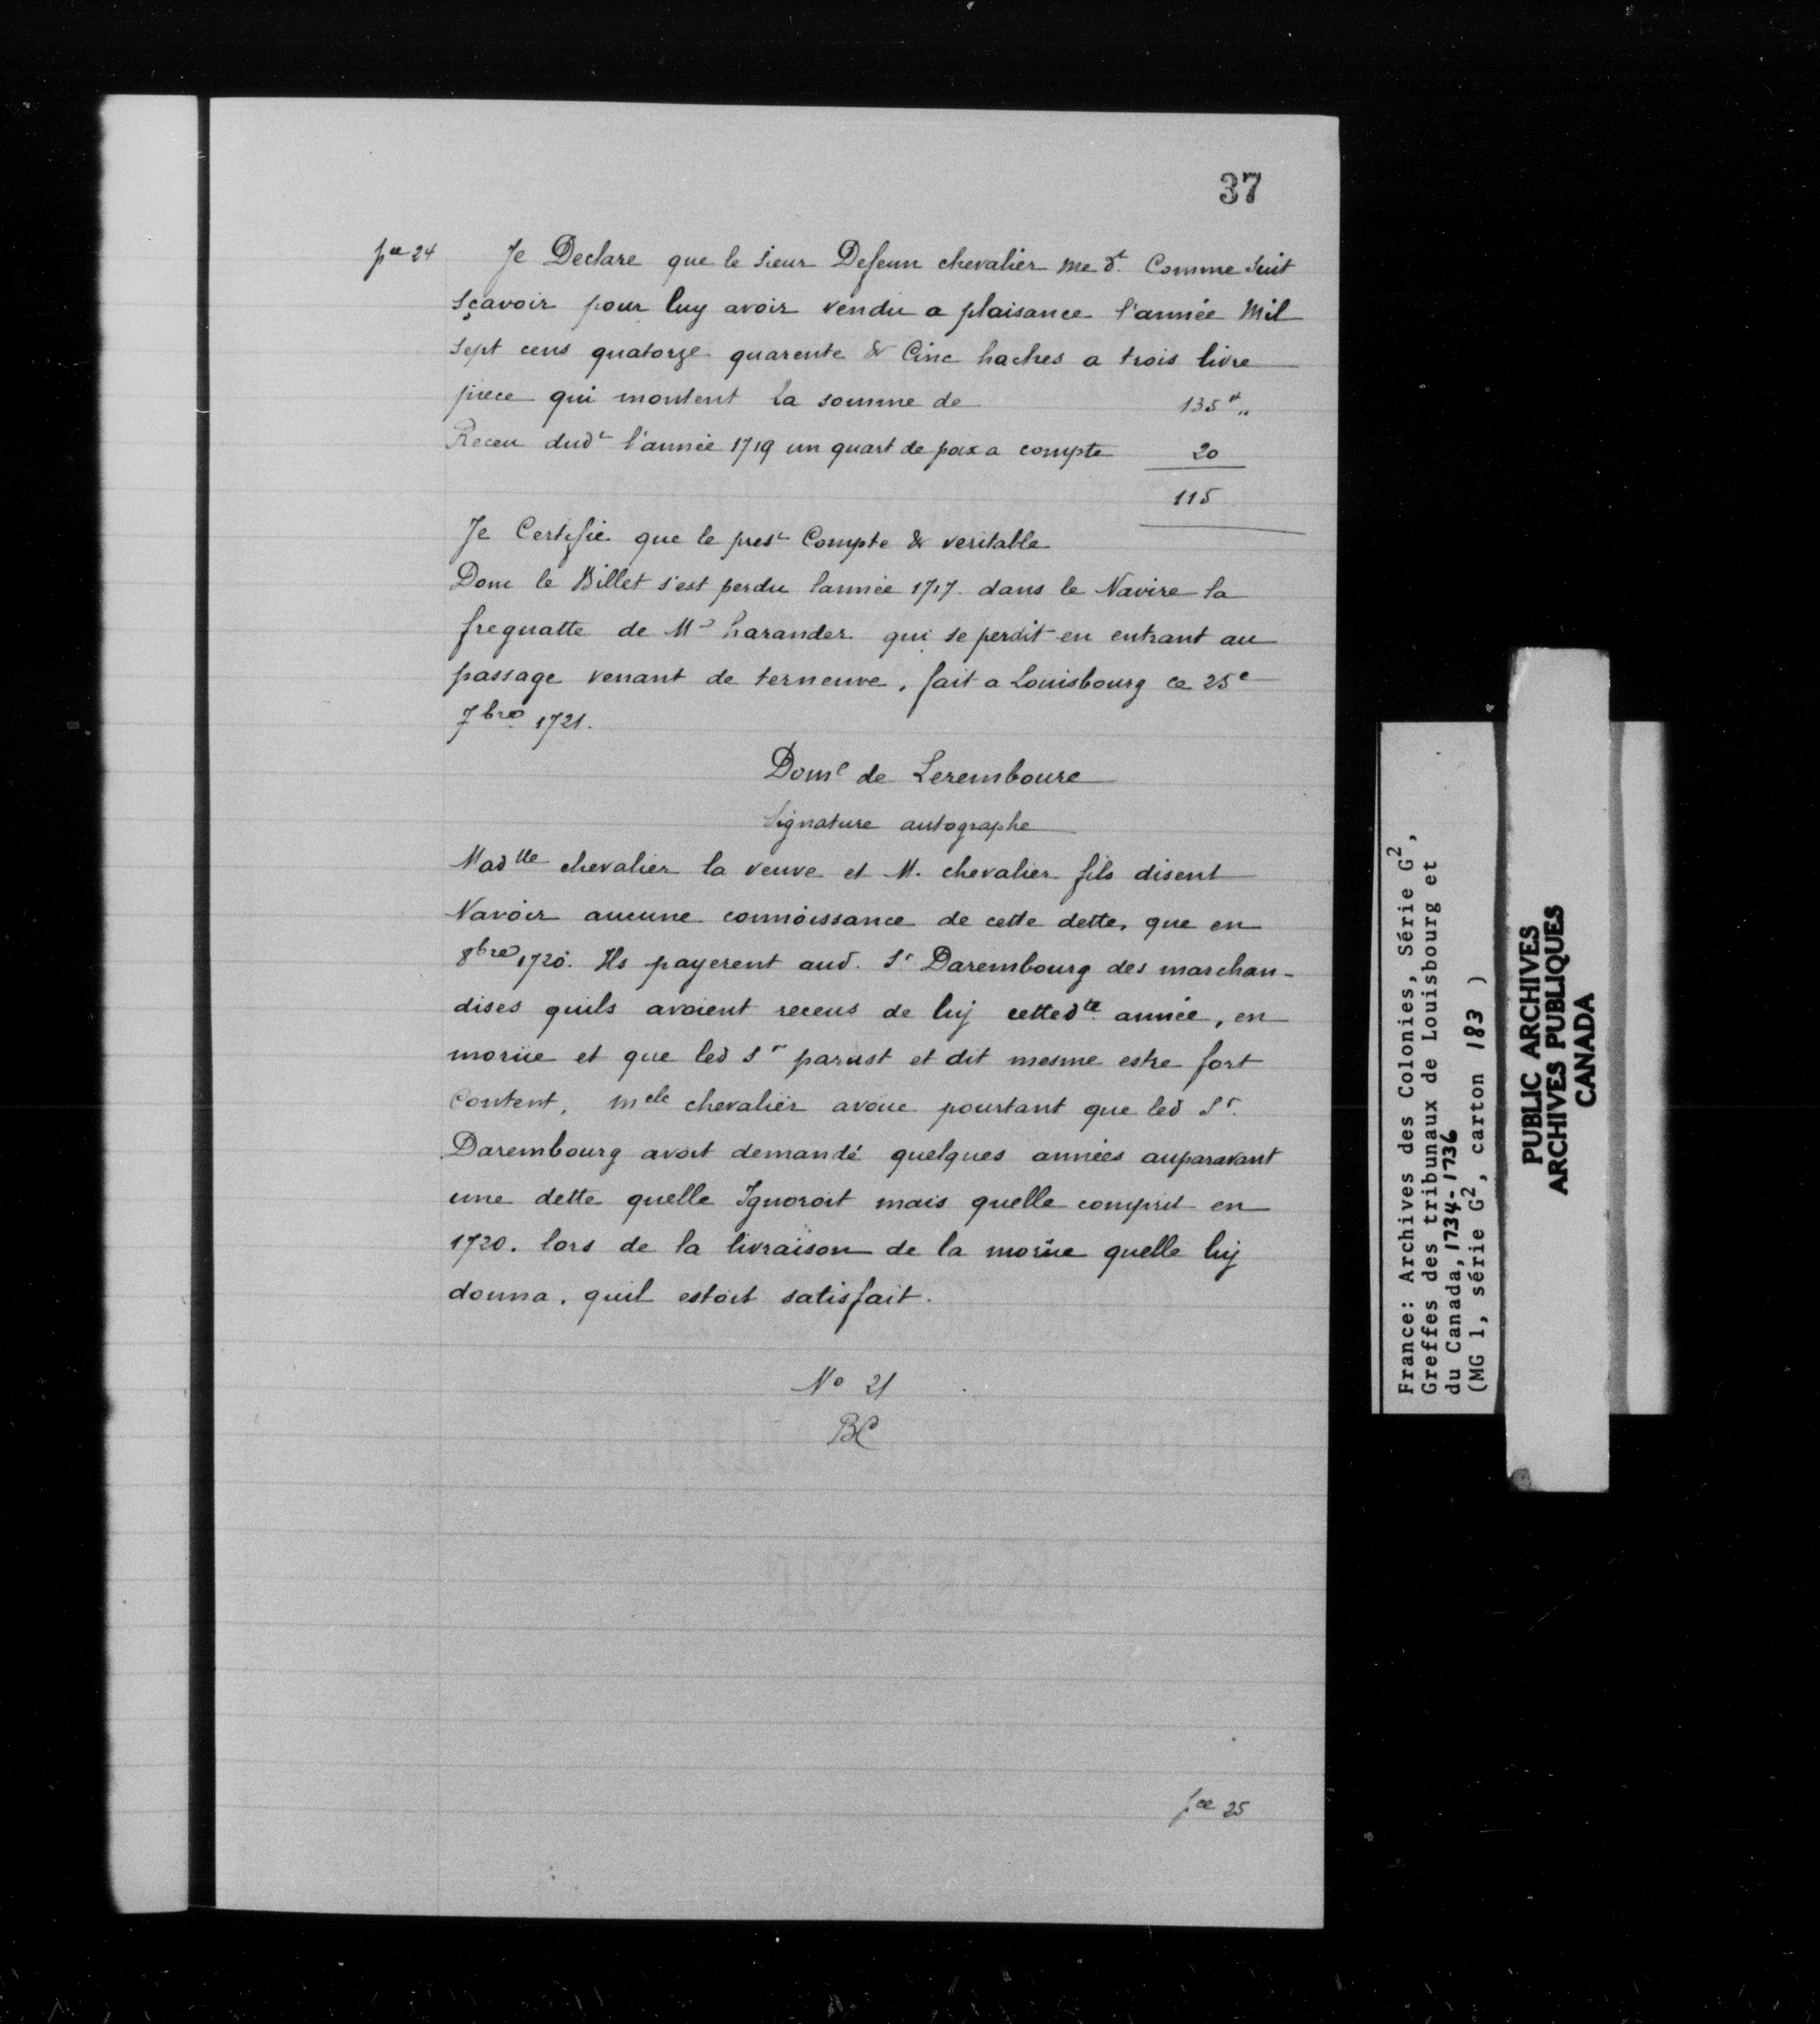 37
pce 24 Je Declare que le sieur Defeun chevalier me dt. Comme suit
sçavoir pour luy avoir vendu a plaisance l'année Mil
sept cens quatorze quarente & Cinc haches a trois livre
piece qui montent la somme de 135 tt "
Receu dudt l'année 1719 un quart de poix a compte 20
115
Je Certifie que le prest Compte & veritable
Donc le Billet s'est perdu lannée 1717. dans le Navire la
freguatte de Mr harander qui se perdit en entrant au
passage venant de terneuve, fait a Louisbourg ce 25e
7bre 1721.
Domc de Leremboure
Signature autographe
Madlle chevalier la veuve et M. chevalier fils disent
Navoir aucune connoissance de cette dette, que en
8bre 1720. Ils payerent aud. Sr Darembourg des marchan-
dises quils avoient receus de luy cettedte année, en
morüe et que led Sr parust et dit mesme estre fort
Content, melle chevalier avoue pourtant que led Sr.
Darembourg avoit demandé quelques années auparavant
une dette quelle Ignoroit mais quelle comprit en
1720. lors de la livraison de la morüe quelle luy
donna, quil estoit satisfait.
No 21
BC
pce 25
France: Archives des Colonies, Série G2,
Greffes des tribunaux de Louisbourg et
du Canada, 1734-1736
(MG 1, série G2, carton 183 )
PUBLIC ARCHIVES
ARCHIVES PUBLIQUES
CANADA